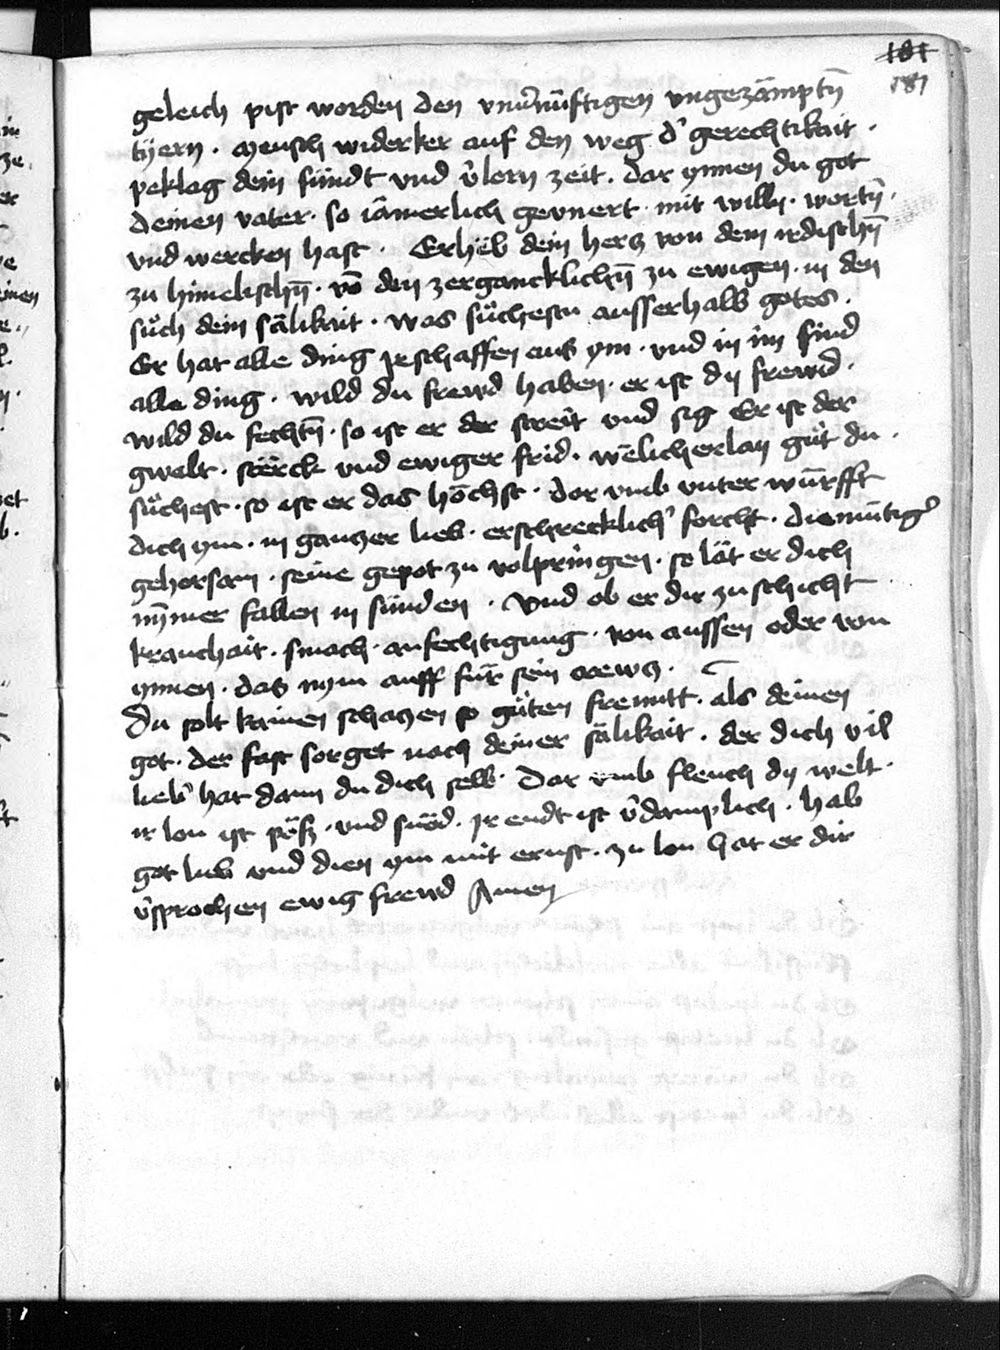 181
187
geleich pist worden den vnu̓nu̇ftigen vngezämptn̄
tÿern · mensch widerker auf den weg d' gerechtikait ·
peklag dein sündt vnd v̓lorn zeit · dar ynnen du got
deinen vater · so iämerlich gevnert · mit willn · wortn̄ ·
vnd wercken hast · Erhëb dein hercz von dem irdischn̄
zu himelischn̄ · vō den zerganncklichn̄ zu ewigen · in den
süch dein sälikait · was süchestu ausserhalb gotes ·
Er hat alle ding Jrschaffen aus ym · vnd in im sind
alle ding · wild du frewd haben · er ist dÿ frewd ·
wild du fechtn̄ · so ist er der streit vnd sig Er ist der
gwalt · sterck vnd ewiger frid · welicherlay güt du ·
süchest · so ist er das höchst · dar vmb vnter würfft
dich ym · in gantzer lieb · erschrecklich' forcht · diemütig'
gehorsam · seine gepot zu volpringen · so lät er dich
nym̄er fallen in sünden · vnd ob er dir zu schicht
kranchait · smach · anfechtigung · von aussen oder von
ynnen · das nym auff für sein creucz ·
Du solt kainen schaczen so güten frewntt · als deinen
got · der fast sorget nach deiner sälikait · der dich vil
lieb' hat dann du dich selb · Dar vmb fleuch dÿ welt ·
ir lon ist pös · vnd snöd · Jr endt ist v̓damplich · hab
got lieb vnd dien ym mit ernst · zu lon hat er dir
v̓sprochen ewig frewd Amen